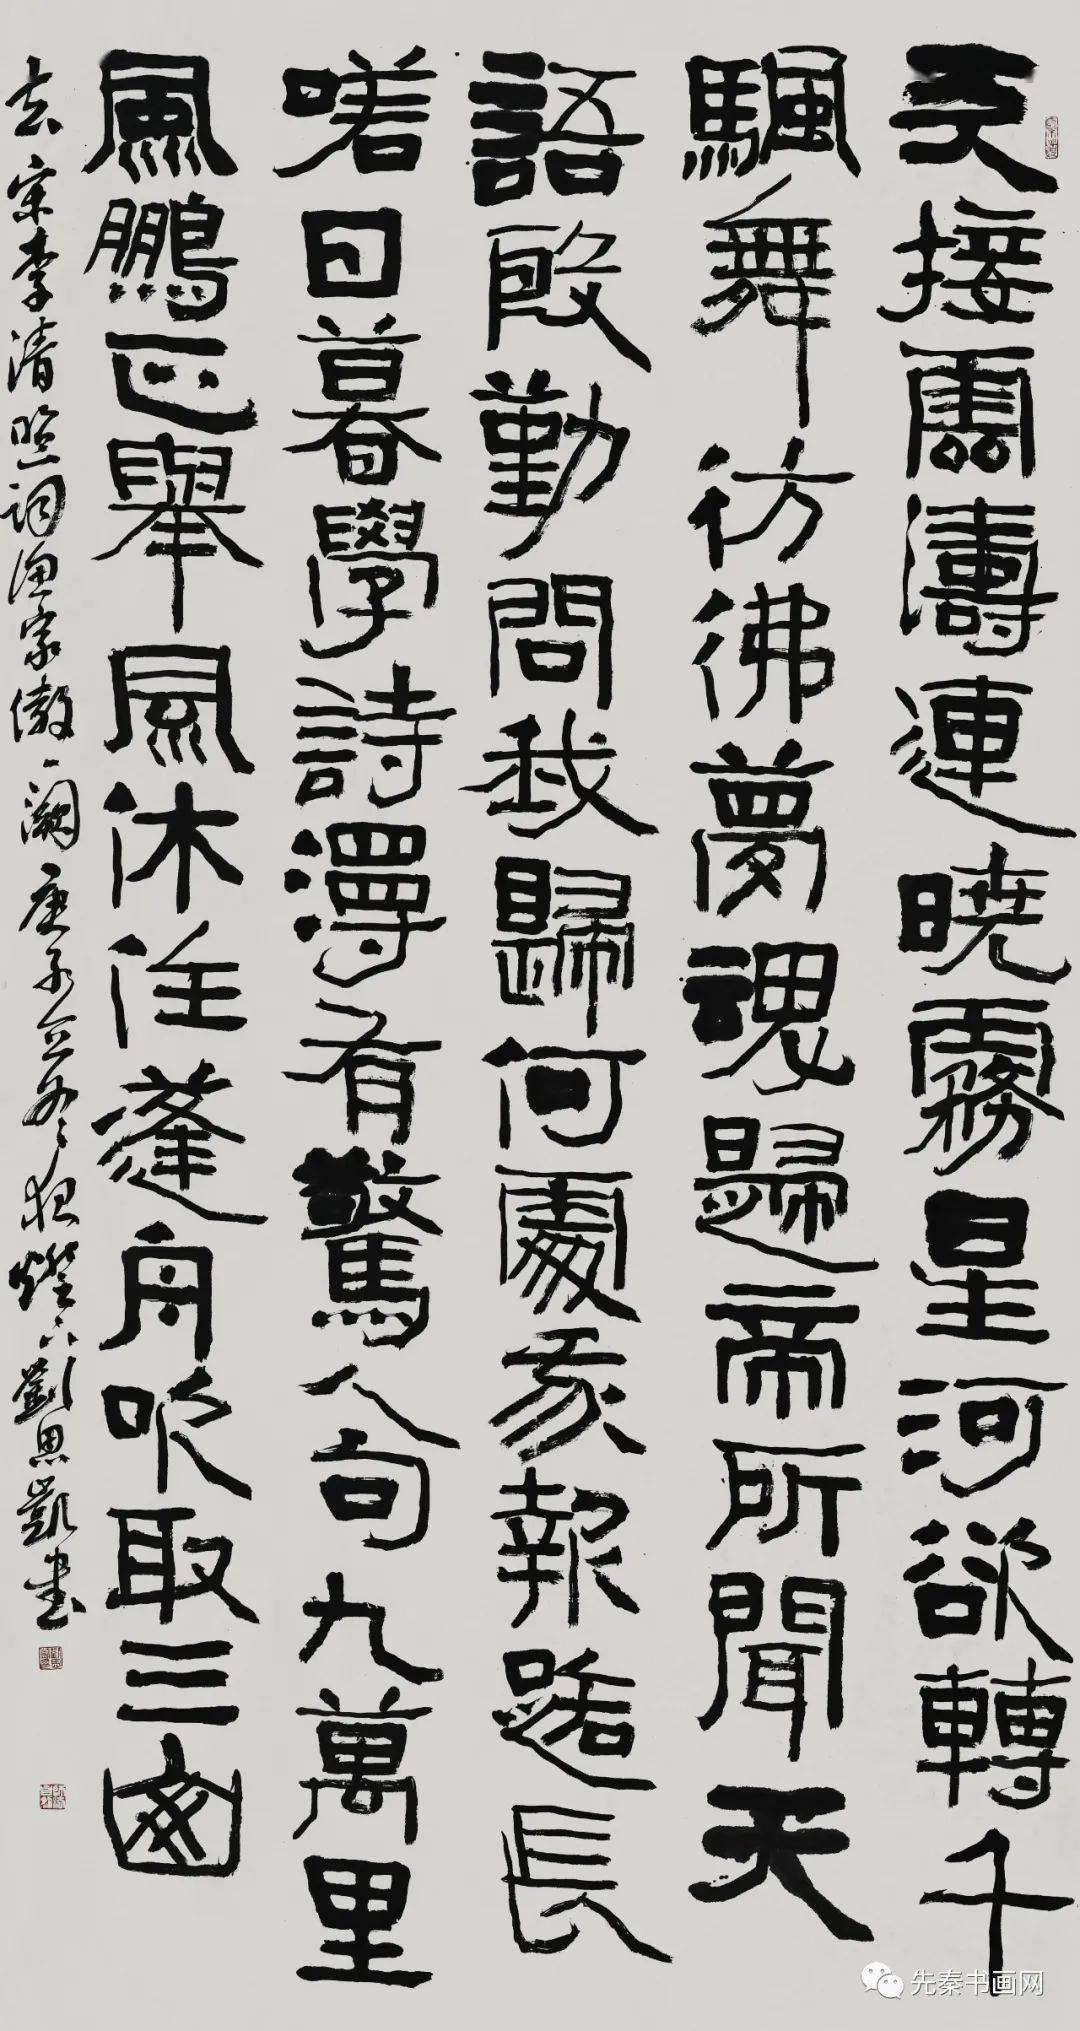 天接雲濤連曉霧星河欲轉千
颿舞彷彿夢魂歸帝所聞天
語殷勤問我歸何處我報路長
嗟日暮學詩漫有驚人句九萬里
風鵬正舉風休住蓬舟吹取三山
去 宋李清照詞漁家傲一闋庚子立冬燈下劉思凱書
先秦书画网